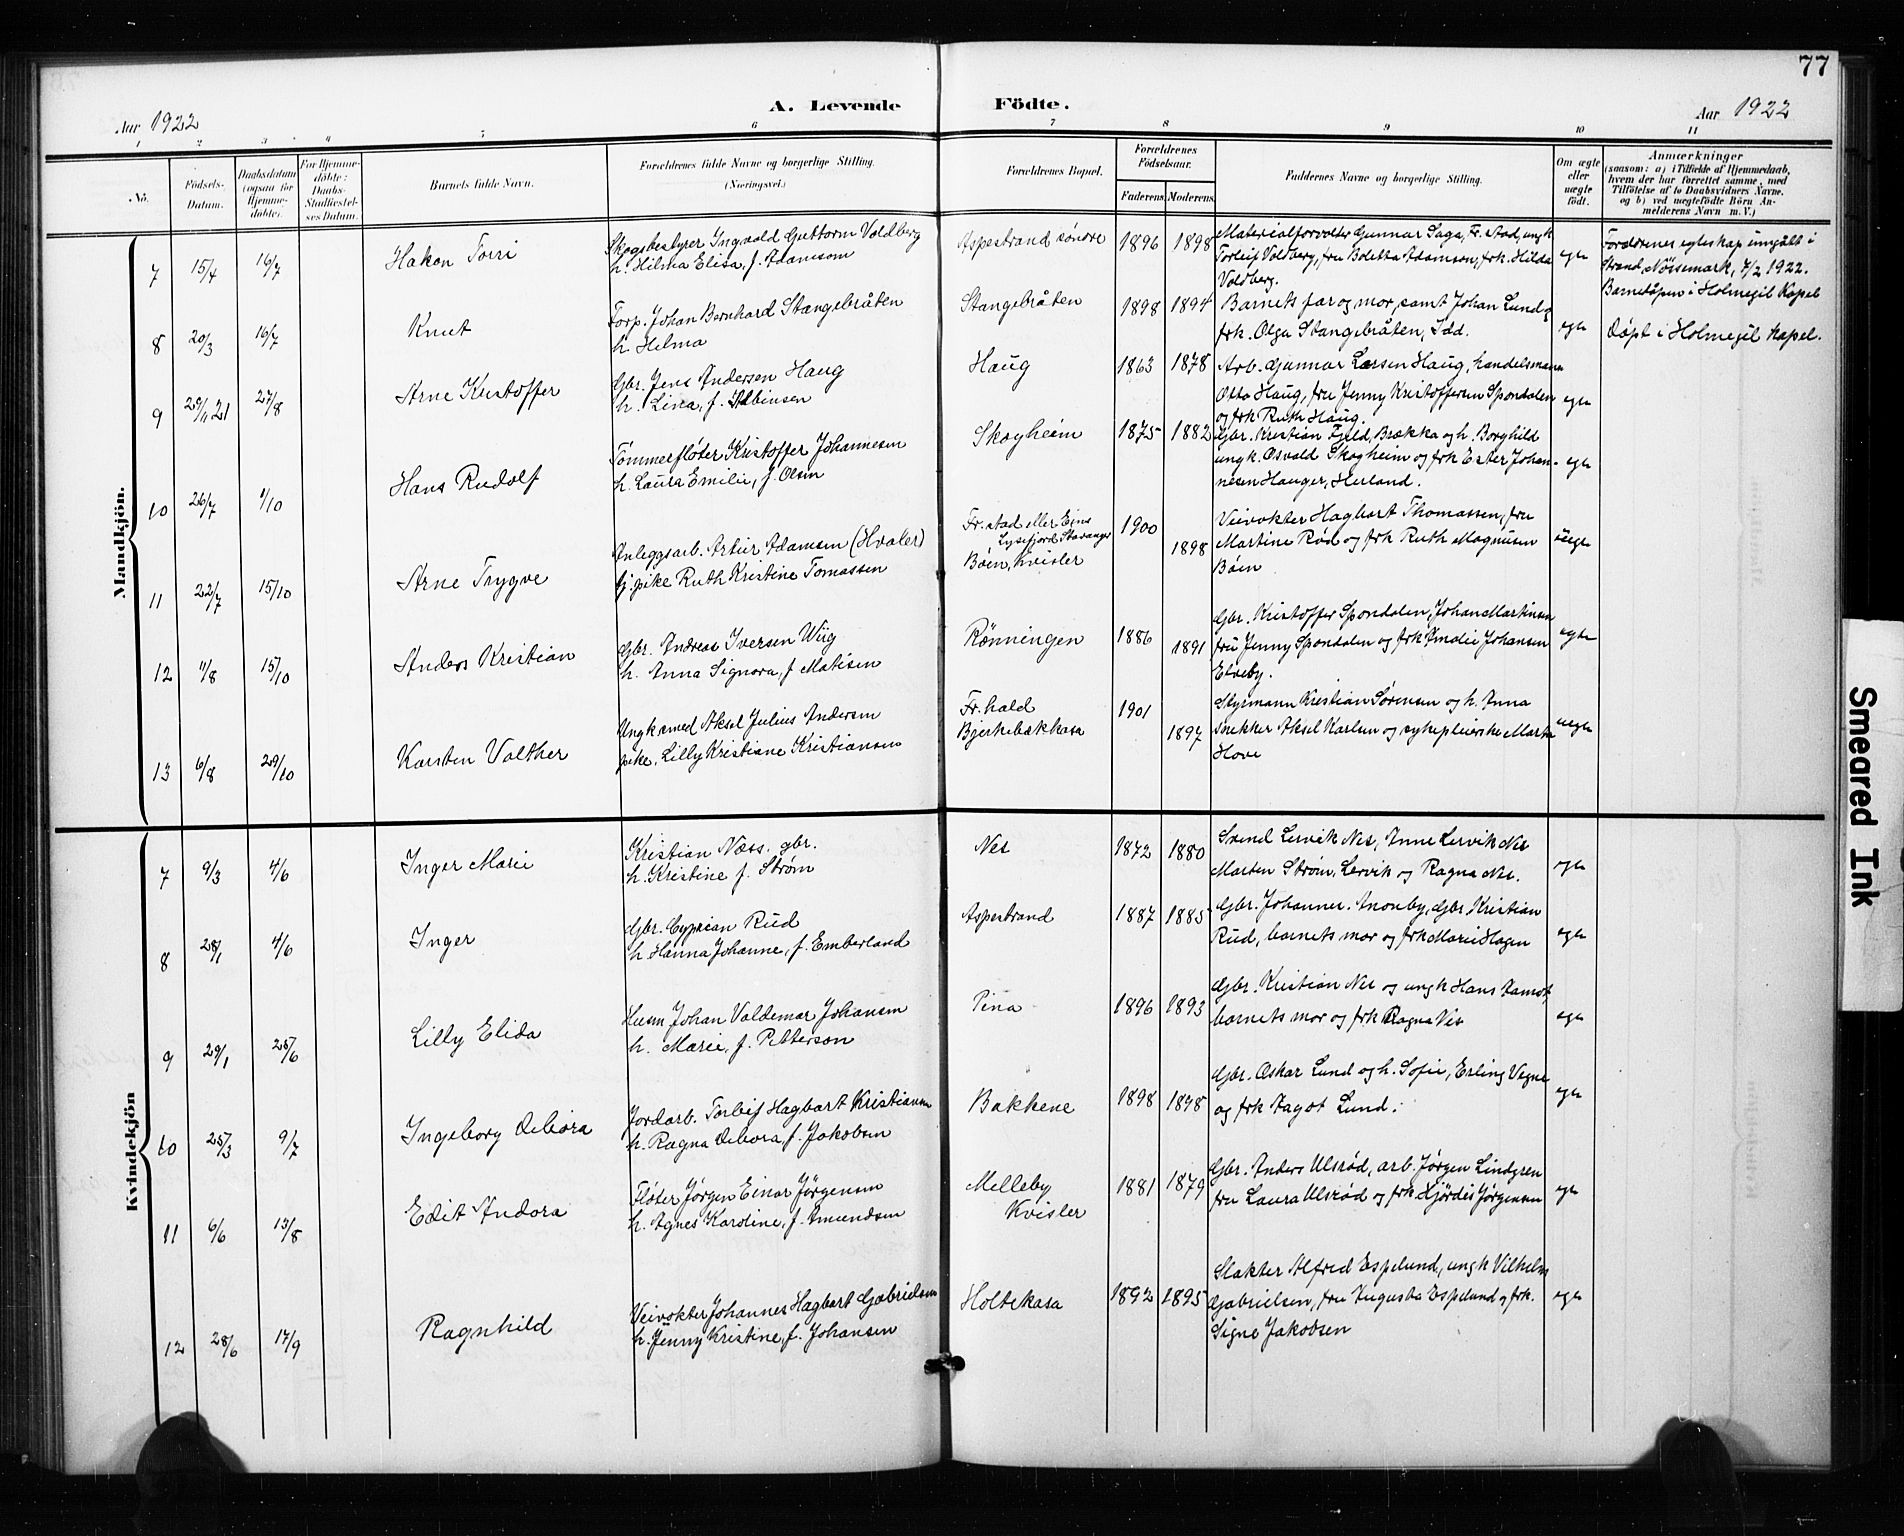 77
A. Levende Födte.
Aar 1922
Aar 1922
1 2 3 4 5 6 7 8 9 10 11
No.
Födsels-Datum.
Daabsdatum (ogsaa for Hjemmedöbte).
For Hjemmedöbte: Daabs-Stadfæstelses Datum.
Barnets fulde Navn.
Forældrenes fulde Navne og borgerlige Stilling. (Næringsvei.)
Forældrenes Bopæl.
Forældrenes Födselsaar.
Faderens. Moderens.
Faddernes Navne og borgerlige Stilling.
Om ægte eller uægte födt.
Anmærkninger
(saasom: a) i Tilfælde af Hjemmedaab, hvem der har forrettet samme, med Tilföielse af to Daabsvidners Navne, og b) ved uægtefödte Börn Anmelderens Navn m. V.)
Mandkjön.
7 15/4 16/7 Hakon Torri
Skogsbestyrer Ingvald Guttorm Voldberg
h. Hilma Elisa, f. Adamsom
Aspestrand söndre 1896 1898
Materialforvalter Gunnar Saga, Fr.stad, ungk
Torleif Voldberg, fru Boletta Adamson, frk. Hilda
Voldberg.
egte
Forældrenes egteskap inngått i
Strand, Nössemark, 7/2 1922.
Barnet döpen i Holmegil Kapel
8 20/3 16/7 Knut
Forp. Johan Bernhard Stangebråten
h. Helma
Stangebråten 1898 1894
Barnets far og mor, samt Johan Lund og
frk. Olga Stangebråten, Idd.
egte
Döpt i Holmegil kapel.
9 29/11 21 27/8 Arne Kristoffer
Gbr. Jens Andersen Haug
h. Lina, f. Albinsen
Haug 1863 1878
Arb. Gunnar Larsen Haug, handelsmann
Otto Haug, fru Jenny Kristoffersen Spondalen
og frk Ruth Haug.
egte
10 26/7 1/10 Hans Rudolf
Tömmerflöter Kristoffer Johannesen
h. Laura Emilie, f. Olsen
Skogheim 1875 1882
Gbr. Kristian Fjeld, Brækka og h. Borghild
ungk. Osvald Skogheim og frk Ester Johan-
nesen Hauger, Herland.
egte
11 22/7 15/10 Arne Trygve
Anleggsarb. Artur Adamsen (Hvaler)
Gj. pike Ruth Kristine Tomassen
Fr.stad eller Eins
Lysefjord Stavanger
Böen, Kvisler
1900 1898
Veivokter Hagbart Thomassen, fru
Martine Röd og frk Ruth Magnusen
Böen
uegte
12 11/8 15/10 Anders Kristian
Gbr. Andreas Iversen Wiig
h. Anna Signora, f Matisen
Rönningen 1886 1891
Gbr. Kristoffer Spondalen, Johan Martinsen
fru Jenny Spondalen og frk Amalie Johansen
Elveby.
egte
13 6/8 29/10 Karsten Valther
Ungk.smed Aksel Julius Andersen
pike, Lilly Kristiane Kristiansen
Fr.hald
Bjerkebækkasa
1901 1897
Styrmann Kristian Sörensen og h. Anna
Snekker Aksel Karlsen og sykepleierske Marta
Hove
uegte
Kvindekjön
7 9/3 4/6 Inger Marie
Kristian Næss. gbr.
h. Kristine f. Ström
Nes 1872 1880
Svend Lervik Nes, Anne Lervik Nes
Marten Ström, Lervik og Ragna Nes.
egte
8 28/1 4/6 Inger
Gbr. Cyprian Rud
h. Hanna Johanne, f. Emberland
Aspestrand 1887 1885
Gbr. Johannes Anonby, Gbr. Kristian
Rud, barnets mor og frk Marie Hagen
egte
9 29/1 25/6 Lilly Elida
Husm Johan Valdemar Johansen
h. Marie, f. Petterson
Pina 1896 1893
Gbr. Kristian Nes og ungk Hans
barnets mor og frk Ragna Nes
egte
10 25/3 9/7 Ingeborg Debora
Jordarb. Torleif Hagbart Kristiansen
h. Ragna Debora, f. Jakobsen
Bakkene 1898 1898
Gbr. Oskar Lund og h. Sofie, Erling Vegne
og frk Dagot Lund.
egte
11 6/6 13/8 Edit Andora
Flöter Jörgen Einar Jörgensen
h. Agnes Karoline, f. Amundsen
Melleby
Kvisler
1881 1879
Gbr. Anders Ulsröd, arb. Jörgen Lindgren
fru Laura Ulsröd og frk. Hjördis Jörgensen
egte
12 28/6 17/9 Ragnhild
Veivokter Johannes Hagbart Gabrielsen
h. Jenny Kristine, f. Johansen
Holtekasa 1892 1895
Slakter Alfred Espelund, ungk Vilhelm
Gabrielsen, fru Augusta Espelund og frk.
Signe Jakobsen
egte
Smeared Ink